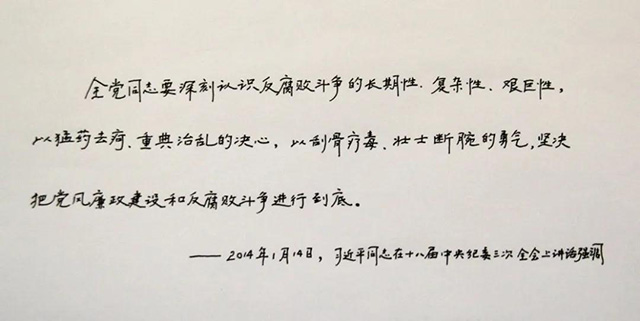 全党同志要深刻认识反腐败斗争的长期性、复杂性、艰巨性，
以猛药去疴、重典治乱的决心，以刮骨疗毒、壮士断腕的勇气，坚决
把党风廉政建设和反腐败斗争进行到底。
——2014年1月14日，习近平同志在十八届中央纪委三次全会上讲话强调